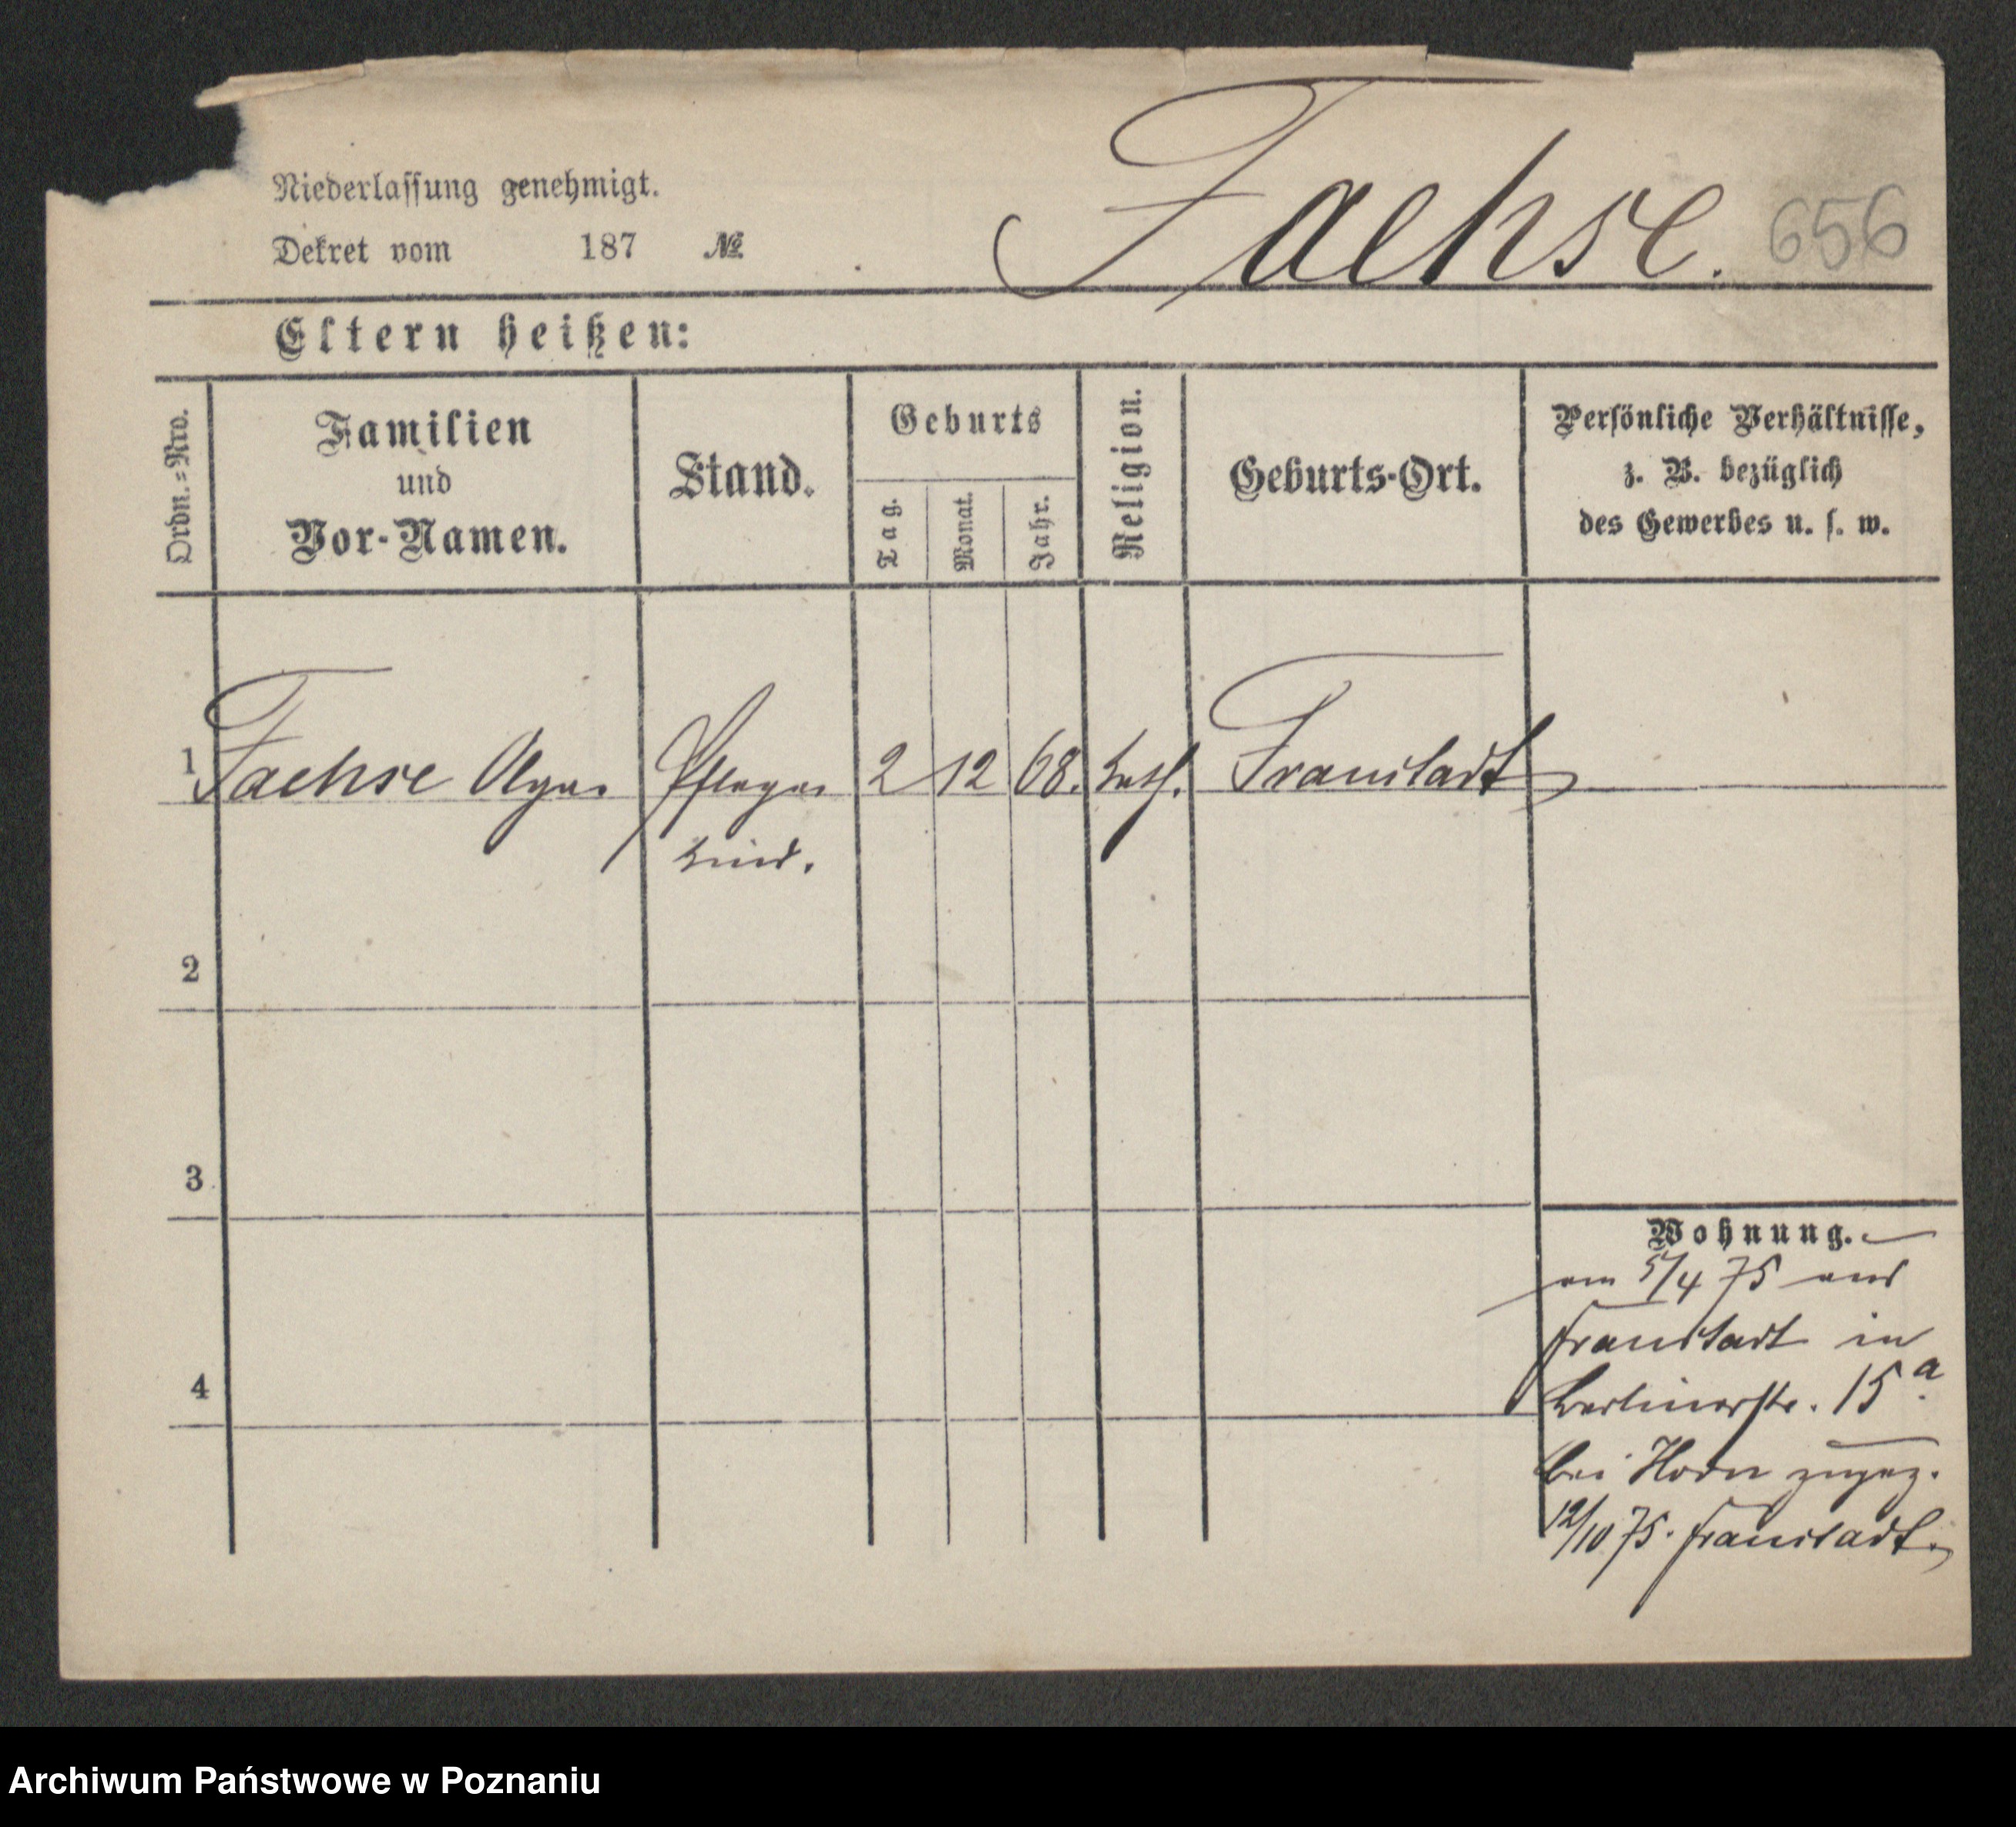 Niederlassung genehmigt.
Dekret vom 187 №
Faehse. 656
Eltern heißen:
Ordn.=Nro.
Familien
und
Vor-Namen.
Stand.
Geburts
Tag.
Monat.
Jahr.
Religion.
Geburts-Ort.
Persönliche Verhältnisse,
z. B. bezüglich
des Gewerbes u. s. w.
1 Faehse Pflege 2 12 68. kath. Fraustadt
kind.
2
3
4
Wohnung.
am 5/4 75 aus
Fraustadt in
Berlinerstr. 15a
bei Horn zugez.
12/10 75. Fraustadt.
Archiwum Państwowe w Poznaniu